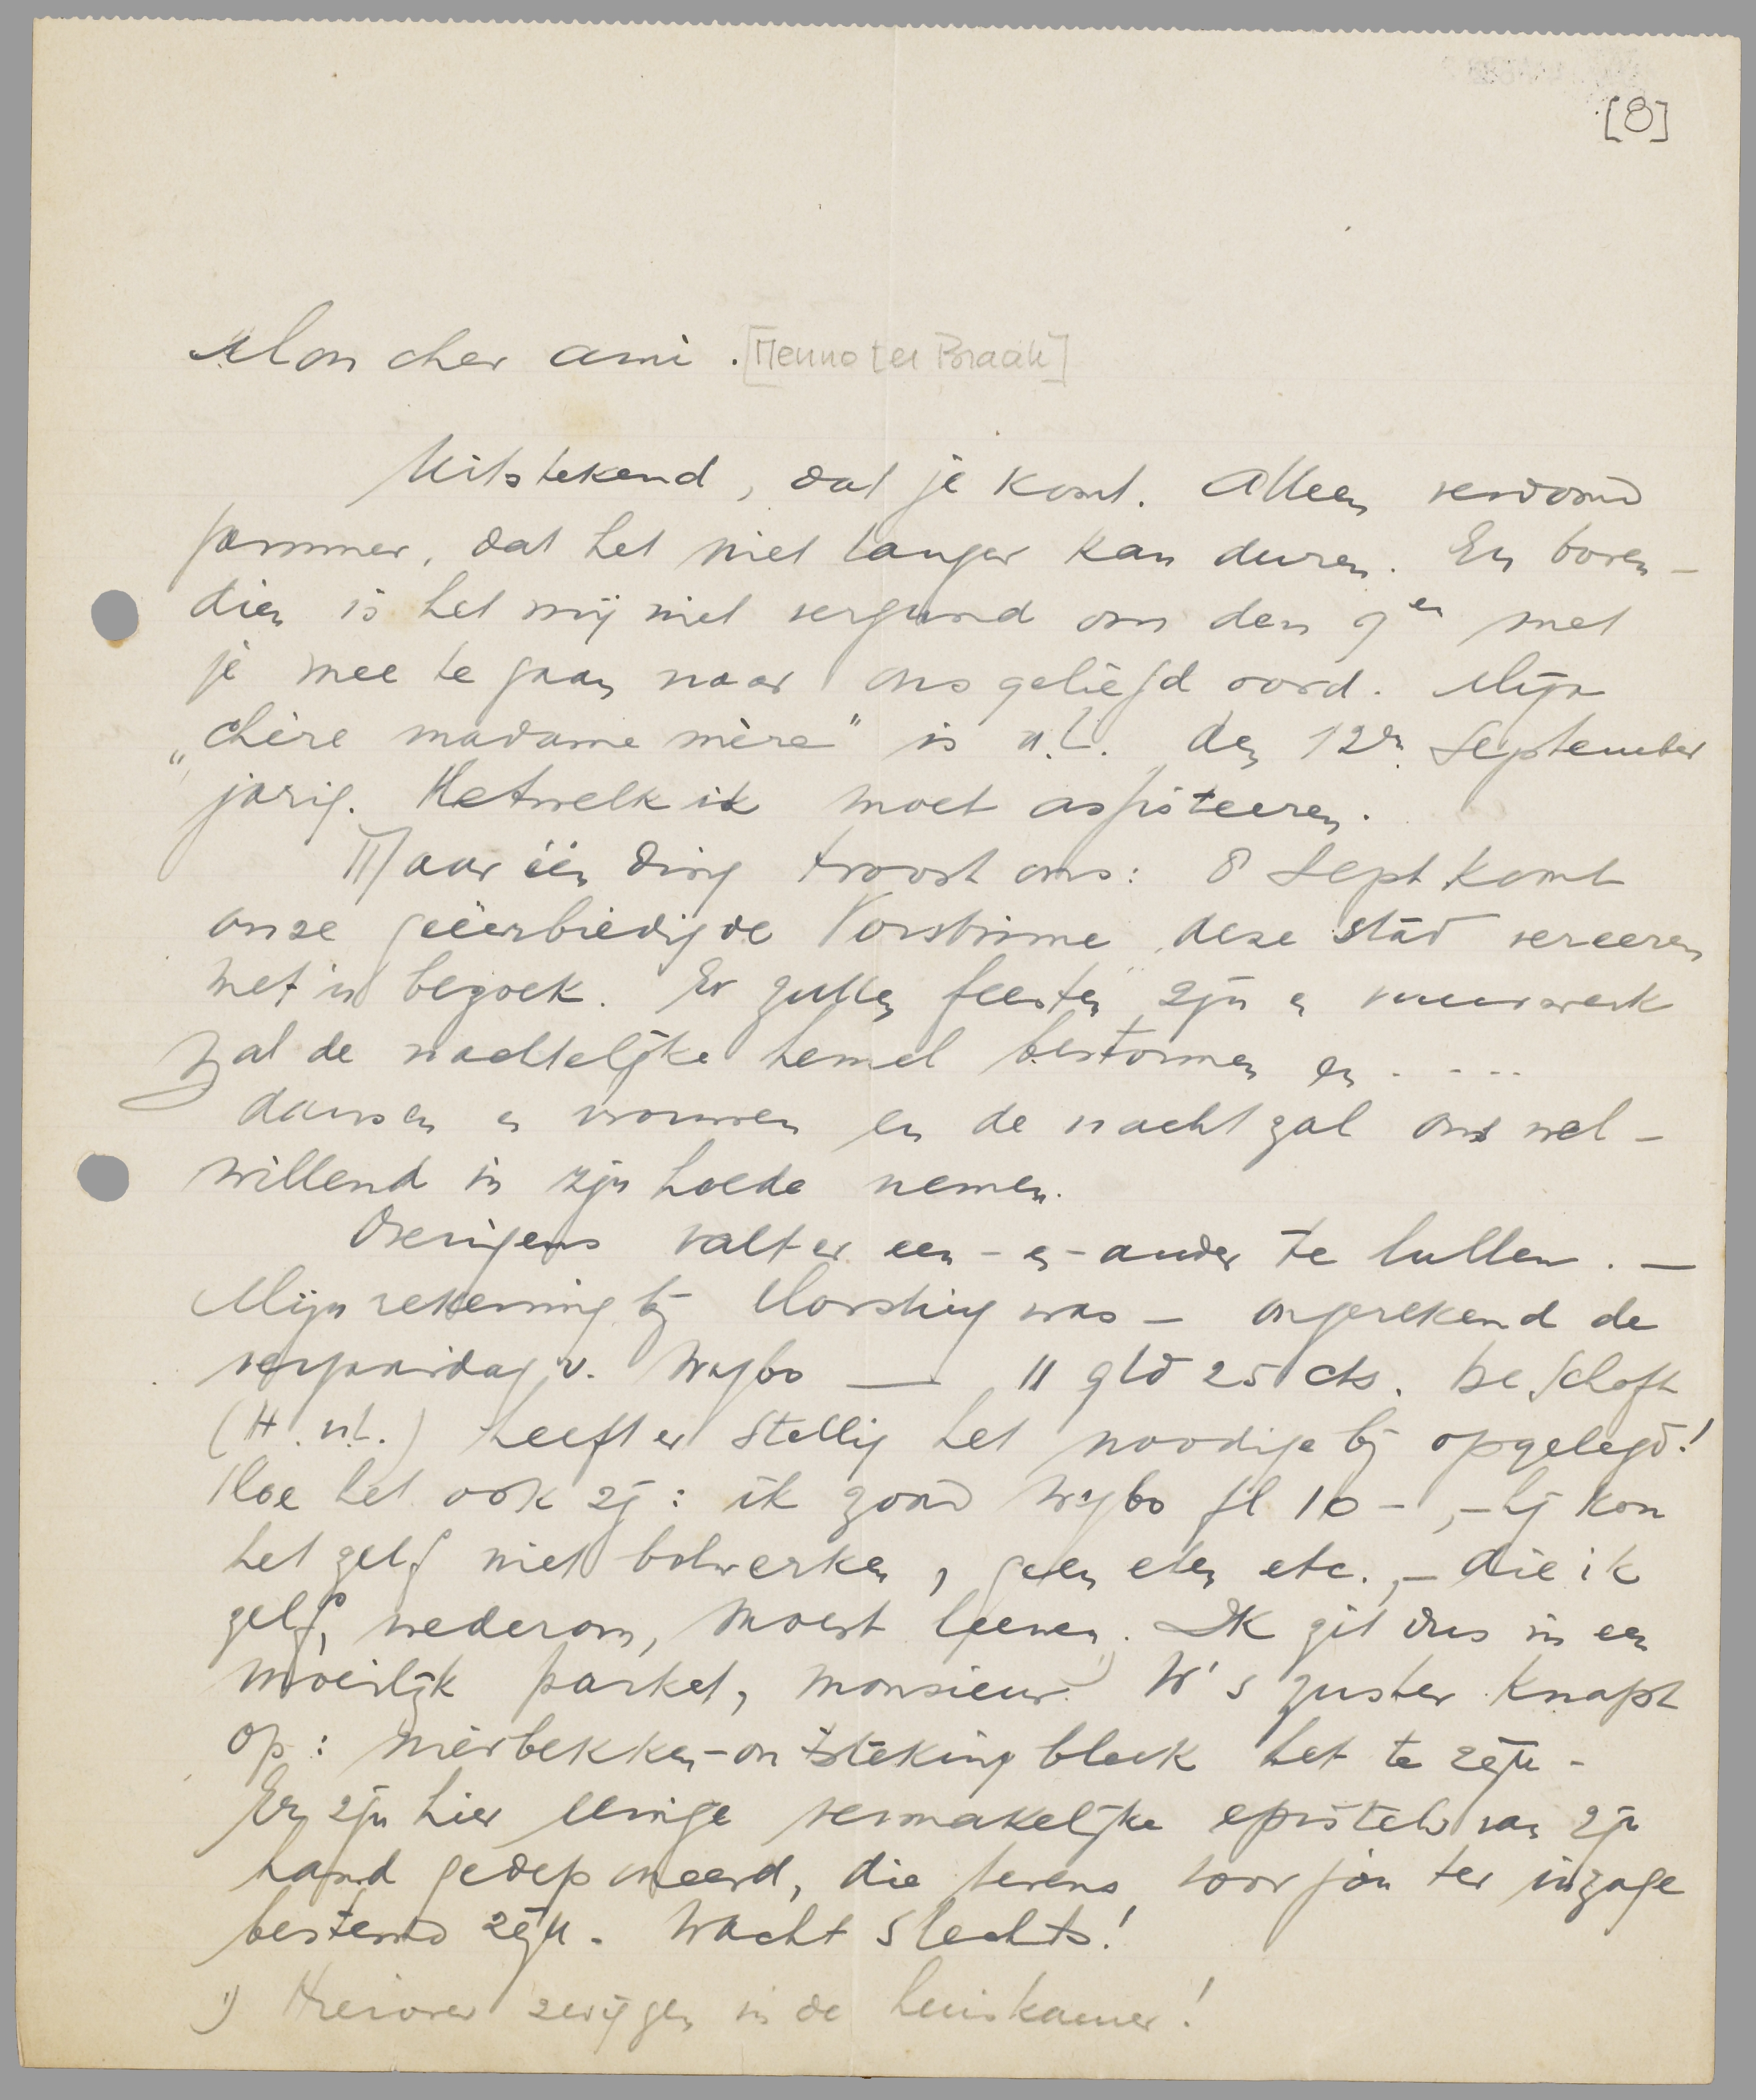 [8]
Mon cher ami. [Menno ter Braak]
Uitstekend, dat je komt. Alleen verdomd
jammer, dat het niet langer kan duren. En boven-
dien is het mij niet vergund om den 9en met
je mee te gaan naar ons geliefd oord. Mijn
„chère madame mère" is n.l. den 12en September
jarig. Hetwelk ik moet assisteeren.
Maar één ding troost ons: 8 Sept komt
onze geëerbiedigde Vorstinne deze stad vereeren
met 'n bezoek. Er zullen feesten zijn en vuurwerk
zal de nachtelijke hemel bestormen en . . . .
dansen en vrouwen en de nacht zal ons wel-
willend in zijn hoede nemen.
Overigens valt er een-en-ander te lullen. —
Mijn rekening bij Horsting was — ongerekend de
verjaardag v. Wybo — 11 gld 25 cts. De schoft
(H. n.l.) heeft er stellig het noodige bij opgelegd!
Hoe het ook zij: ik zond Wybo fl 10-, - hij kon
het zelf niet bolwerken, geen eten etc., - die ik
zelf, wederom, moest leenen. Ik zit dus in een
moeilijk parket, monsieur. 1) W's zuster knapt
op: nierbekken-ontsteking bleek het te zijn.
Er zijn hier eenige vermakelijke epistels van zijn
hand gedeponeerd, die tevens voor jou ter inzage
bestemd zijn. Wacht slechts!
1) Hierover zwijgen in de huiskamer!